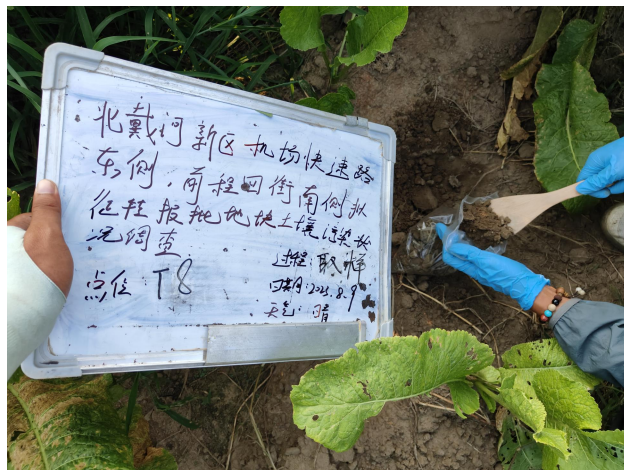 北戴河新区机场快速路
东侧、前程四街南侧拟
征转报批地块土壤污染状
况调查
过程:取样
点位:T8
日期:2025.8.9
天气:晴